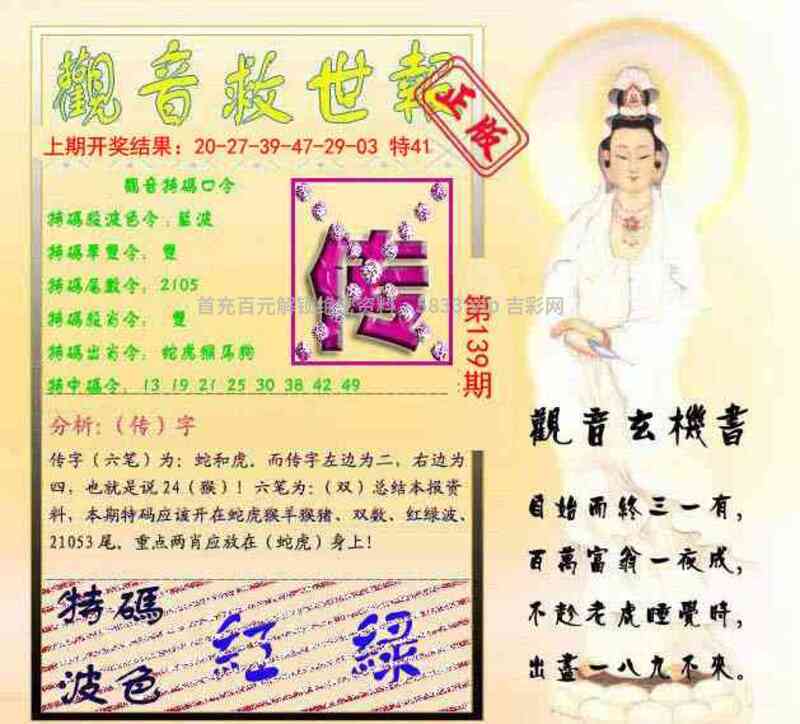 觀音救世報
正版
上期开奖结果：20-27-39-47-29-03 特41
觀音特碼口令
特碼殺波色令：藍波
特碼單雙令：雙
特碼尾數令：2105
特碼殺肖令：雙
特碼出肖令：蛇虎猴馬狗
特中碼令：13 19 21 25 30 38 42 49
传
第139期
首充百元解锁
吉彩网
分析:（传）字
传字（六笔）为：蛇和虎．而传字左边为二，右边为
四，也就是说24（猴）！六笔为：（双）总结本报资
料，本期特码应该开在蛇虎猴羊猴猪、双数、红绿波、
21053尾．重点两肖应放在（蛇虎）身上！
特碼
波色
紅 綠
觀音玄機書
自始而終三一有，
百萬富翁一夜成，
不趁老虎睡覺時，
出盡一八九不來。